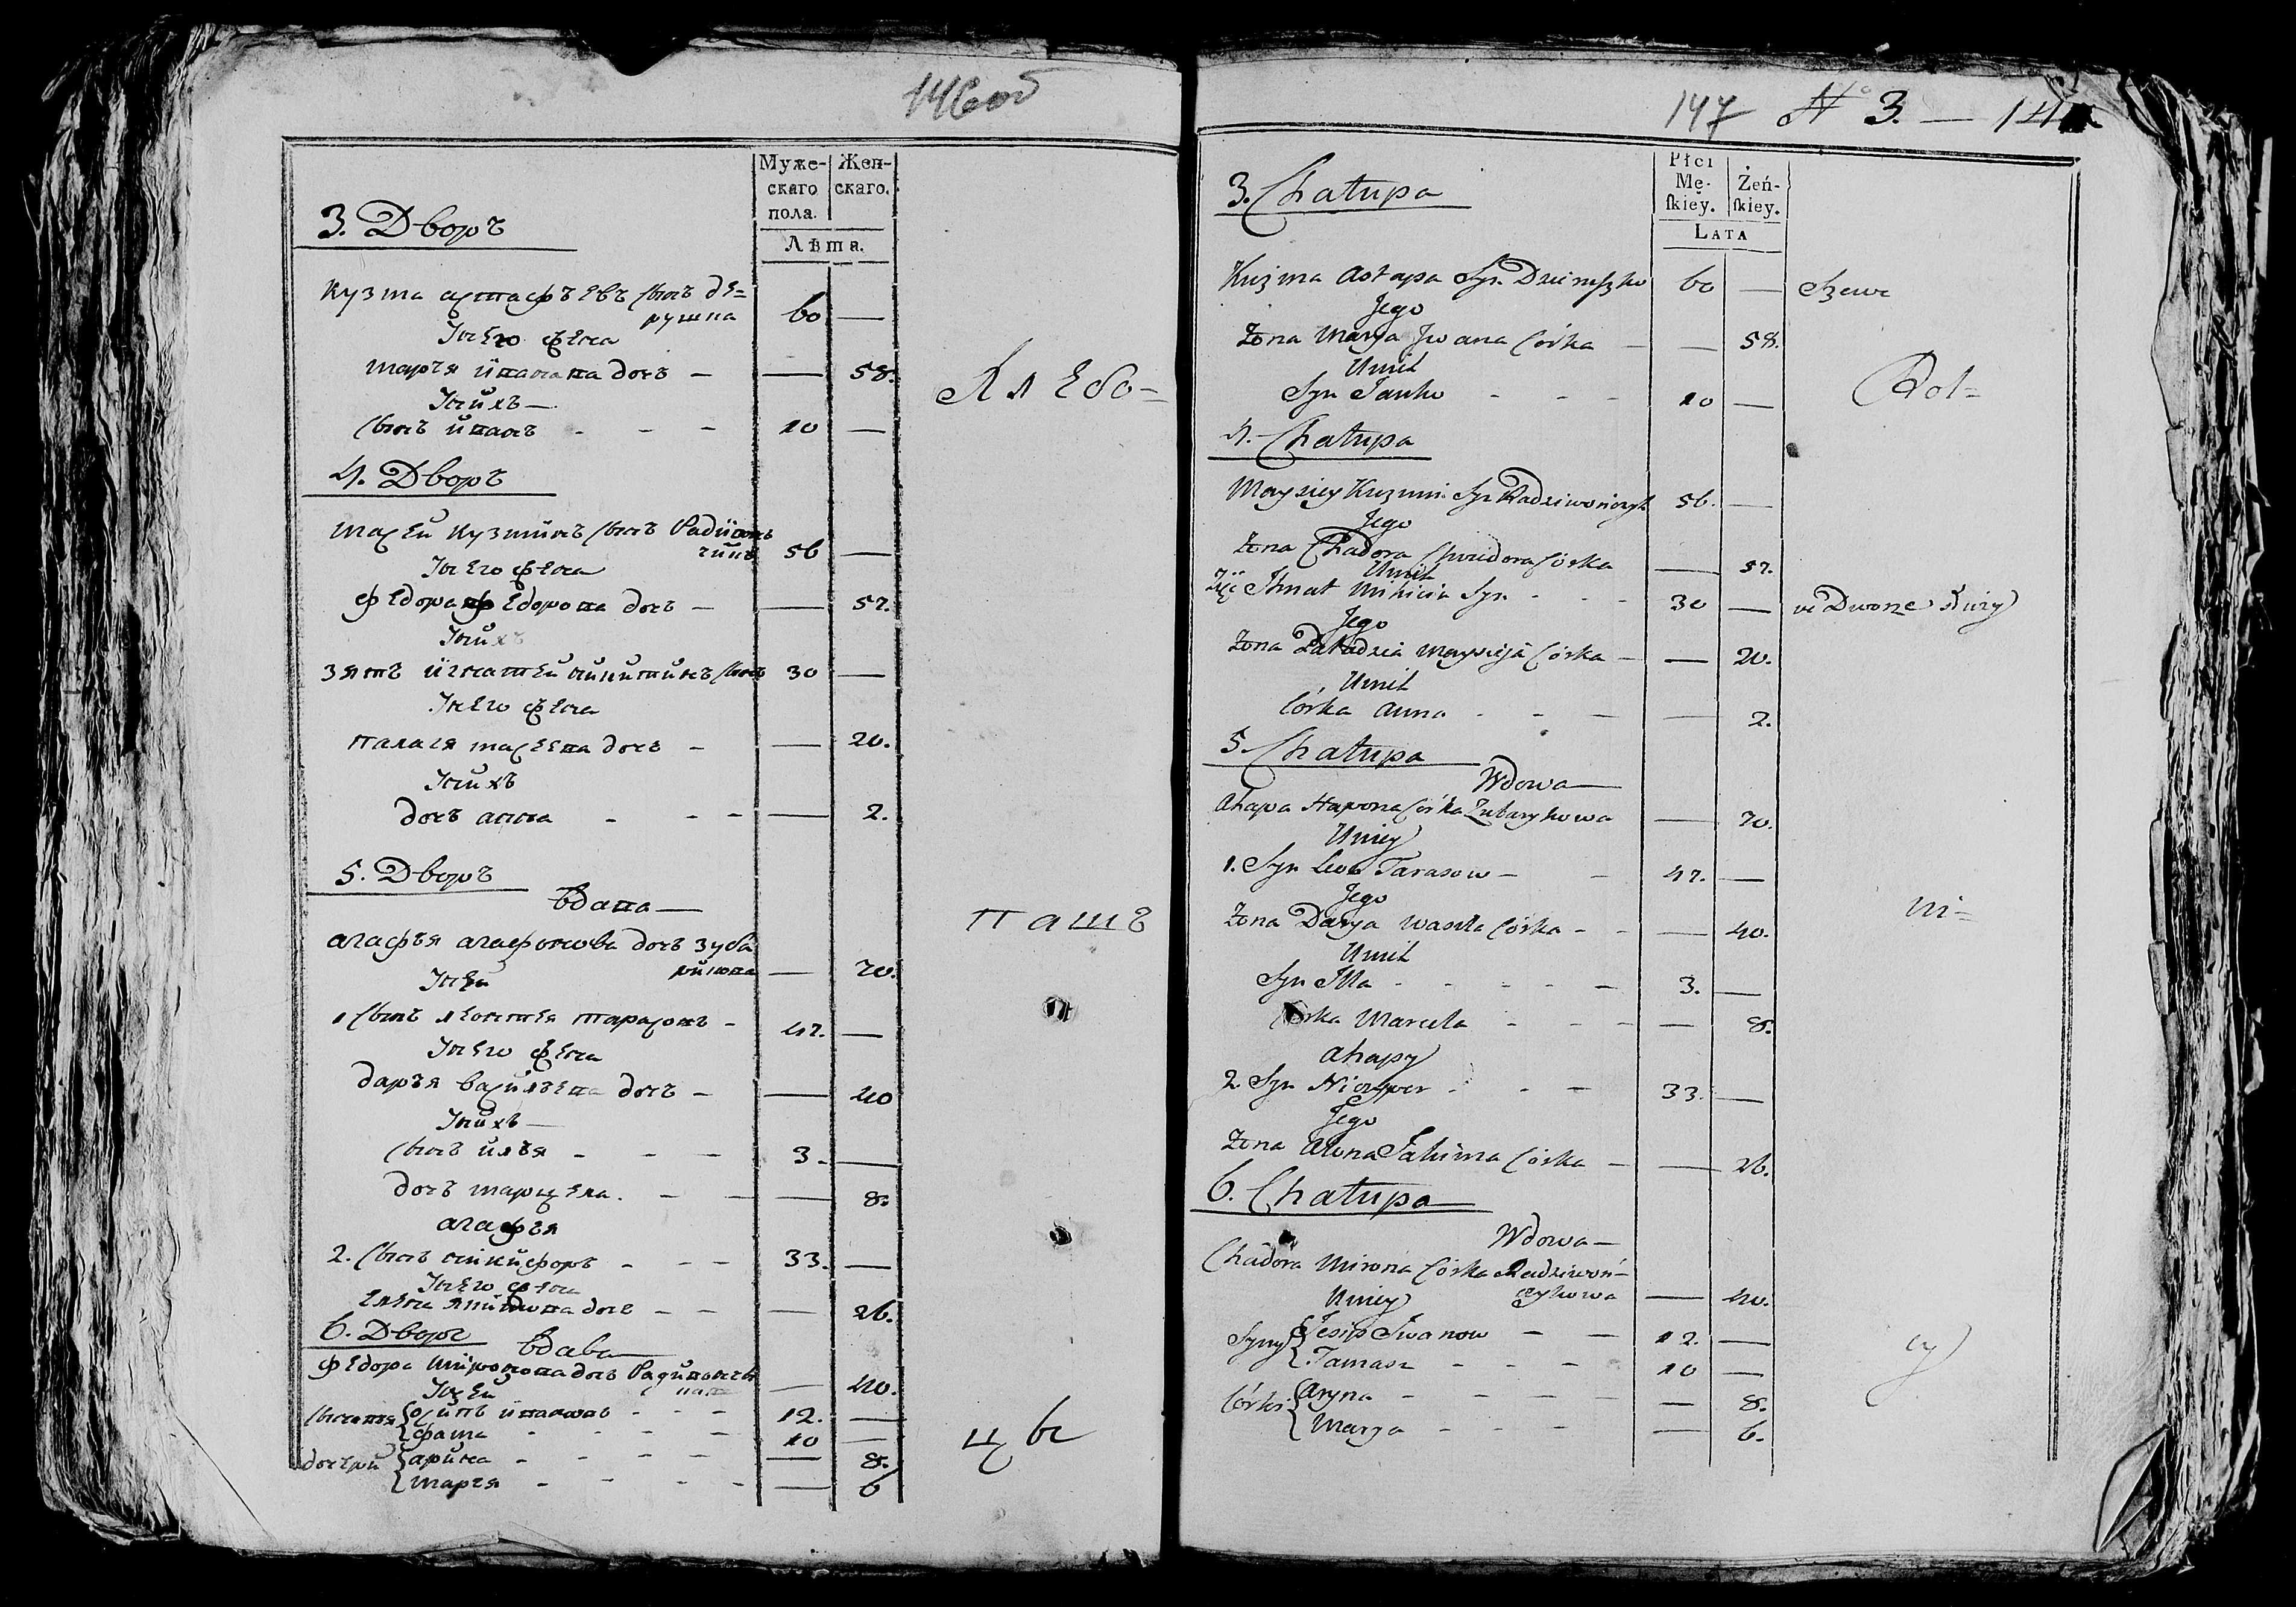 146об
Муже-
скаго
пола.
Жен-
скаго.
Лѣта.
3. Дворъ
Кузма астафъевъ сынъ де=
рушка 60 —
У него жена
маръя иванова дочь — — 58.
У них —
сынъ иванъ - - - 10 —
4. Дворъ
масей Кузминъ сынъ Радивон
чикъ 56 —
У него жена
федора федорова дочь — — 57.
У них
зять игнатей никитинъ сынъ 30 —
У него жена
палагя масеева дочь — — 20.
У нихъ
дочь анна - - - — 2.
5. Дворъ
вдова —
агафъя агафонова дочь зуба
рикова — 70.
У ней
1 сынъ леонтея тарасовъ - 47. —
У него жена
даръя василъева дочь — — 40
У нихъ —
сынъ илъя - - - 3. —
дочь марцела. - - — 8.
агафъя
2. сынъ никифоръ - - - 33. —
У него жена
елена якимова доче - - — 26.
6. Дворъ
вдава
федора миронова дочь Радивонч
У ней — 40.
сыновя { осипъ ивановъ - - - 12. —
фама - - - - 10 —
дочери { арина - - - - — 8.
маргя - - - - — 6
Хлебо=
пашъ
цы
147 № 3. —
Płci
Mę-
ſkiey.
Żeń-
ſkiey.
LATA
3. Chałupa
Kuzma Astapa Syn Dziruszko 60 — Szewc
Jego
Żona Marya Jwana Córka — — 58.
U nich
Syn Janko - - - 10 —
4. Chałupa
Maysiey Kuzmin Syn Radziwonczyk 56. —
Jego
Żona Chadora Chwiedora Córka — 57.
U nich
Zięć Ihnat Mikicin Syn - - - 30 — we Dworze służy
Jego
Żona Paladzia Maysieja Córka — — 20.
U nich
Córka Anna - - — — 2.
5. Chałupa
Wdowa —
Ahapa Hapona Córka Zubarykowa — 70.
U niey
1. Syn Lewon Tarasow — - 47. —
Jego
Żona Darya Wasila Córka - - — 40.
U nich
Syn Illa - - - - — 3. —
Córka Marcela - - - — 8.
Ahapy
2 Syn Niczyper - - — 33. —
Jego
Żona Alona Jakima Córka — — 26.
6. Chałupa
Wdowa —
Chadora Mirona Córka Radziwoń-
U niey czykowa — 40.
Syny { Jesip Iwanow — — 12. —
Tamasz - - - 10 —
Córki { Aryna - - - - — 8.
Marya - - - — 6.
Rol=
ni=
cy